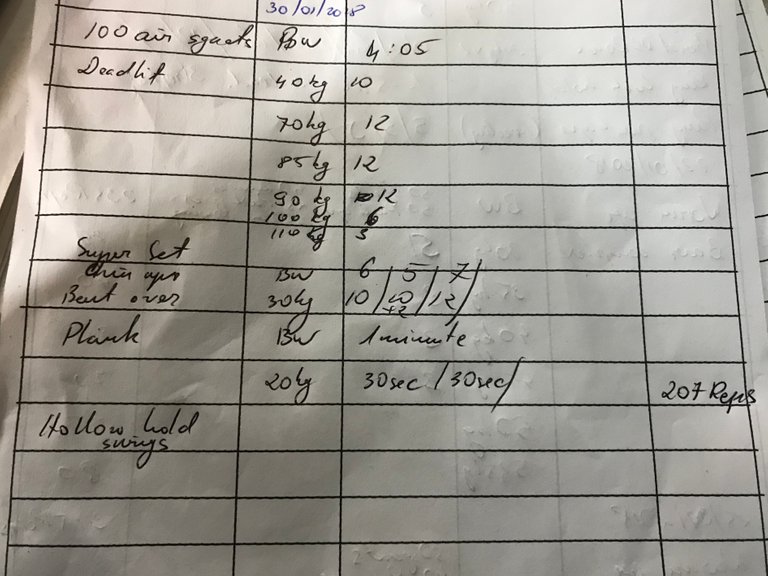 30/01/2018
100 air sguats Bw 4:05
Deadlit 40kg 10
70kg 12
85kg 12
90 kg 12
100 kg 6
110 kg 3
Super Set
Chin ups Bw 6 / 5 / 7 /
Bent over 30kg 10 / 10 / 12 /
+2
Plank Bw 1 minute
20kg 30sec / 30sec/ 207 Reps
Hollow hold
swings